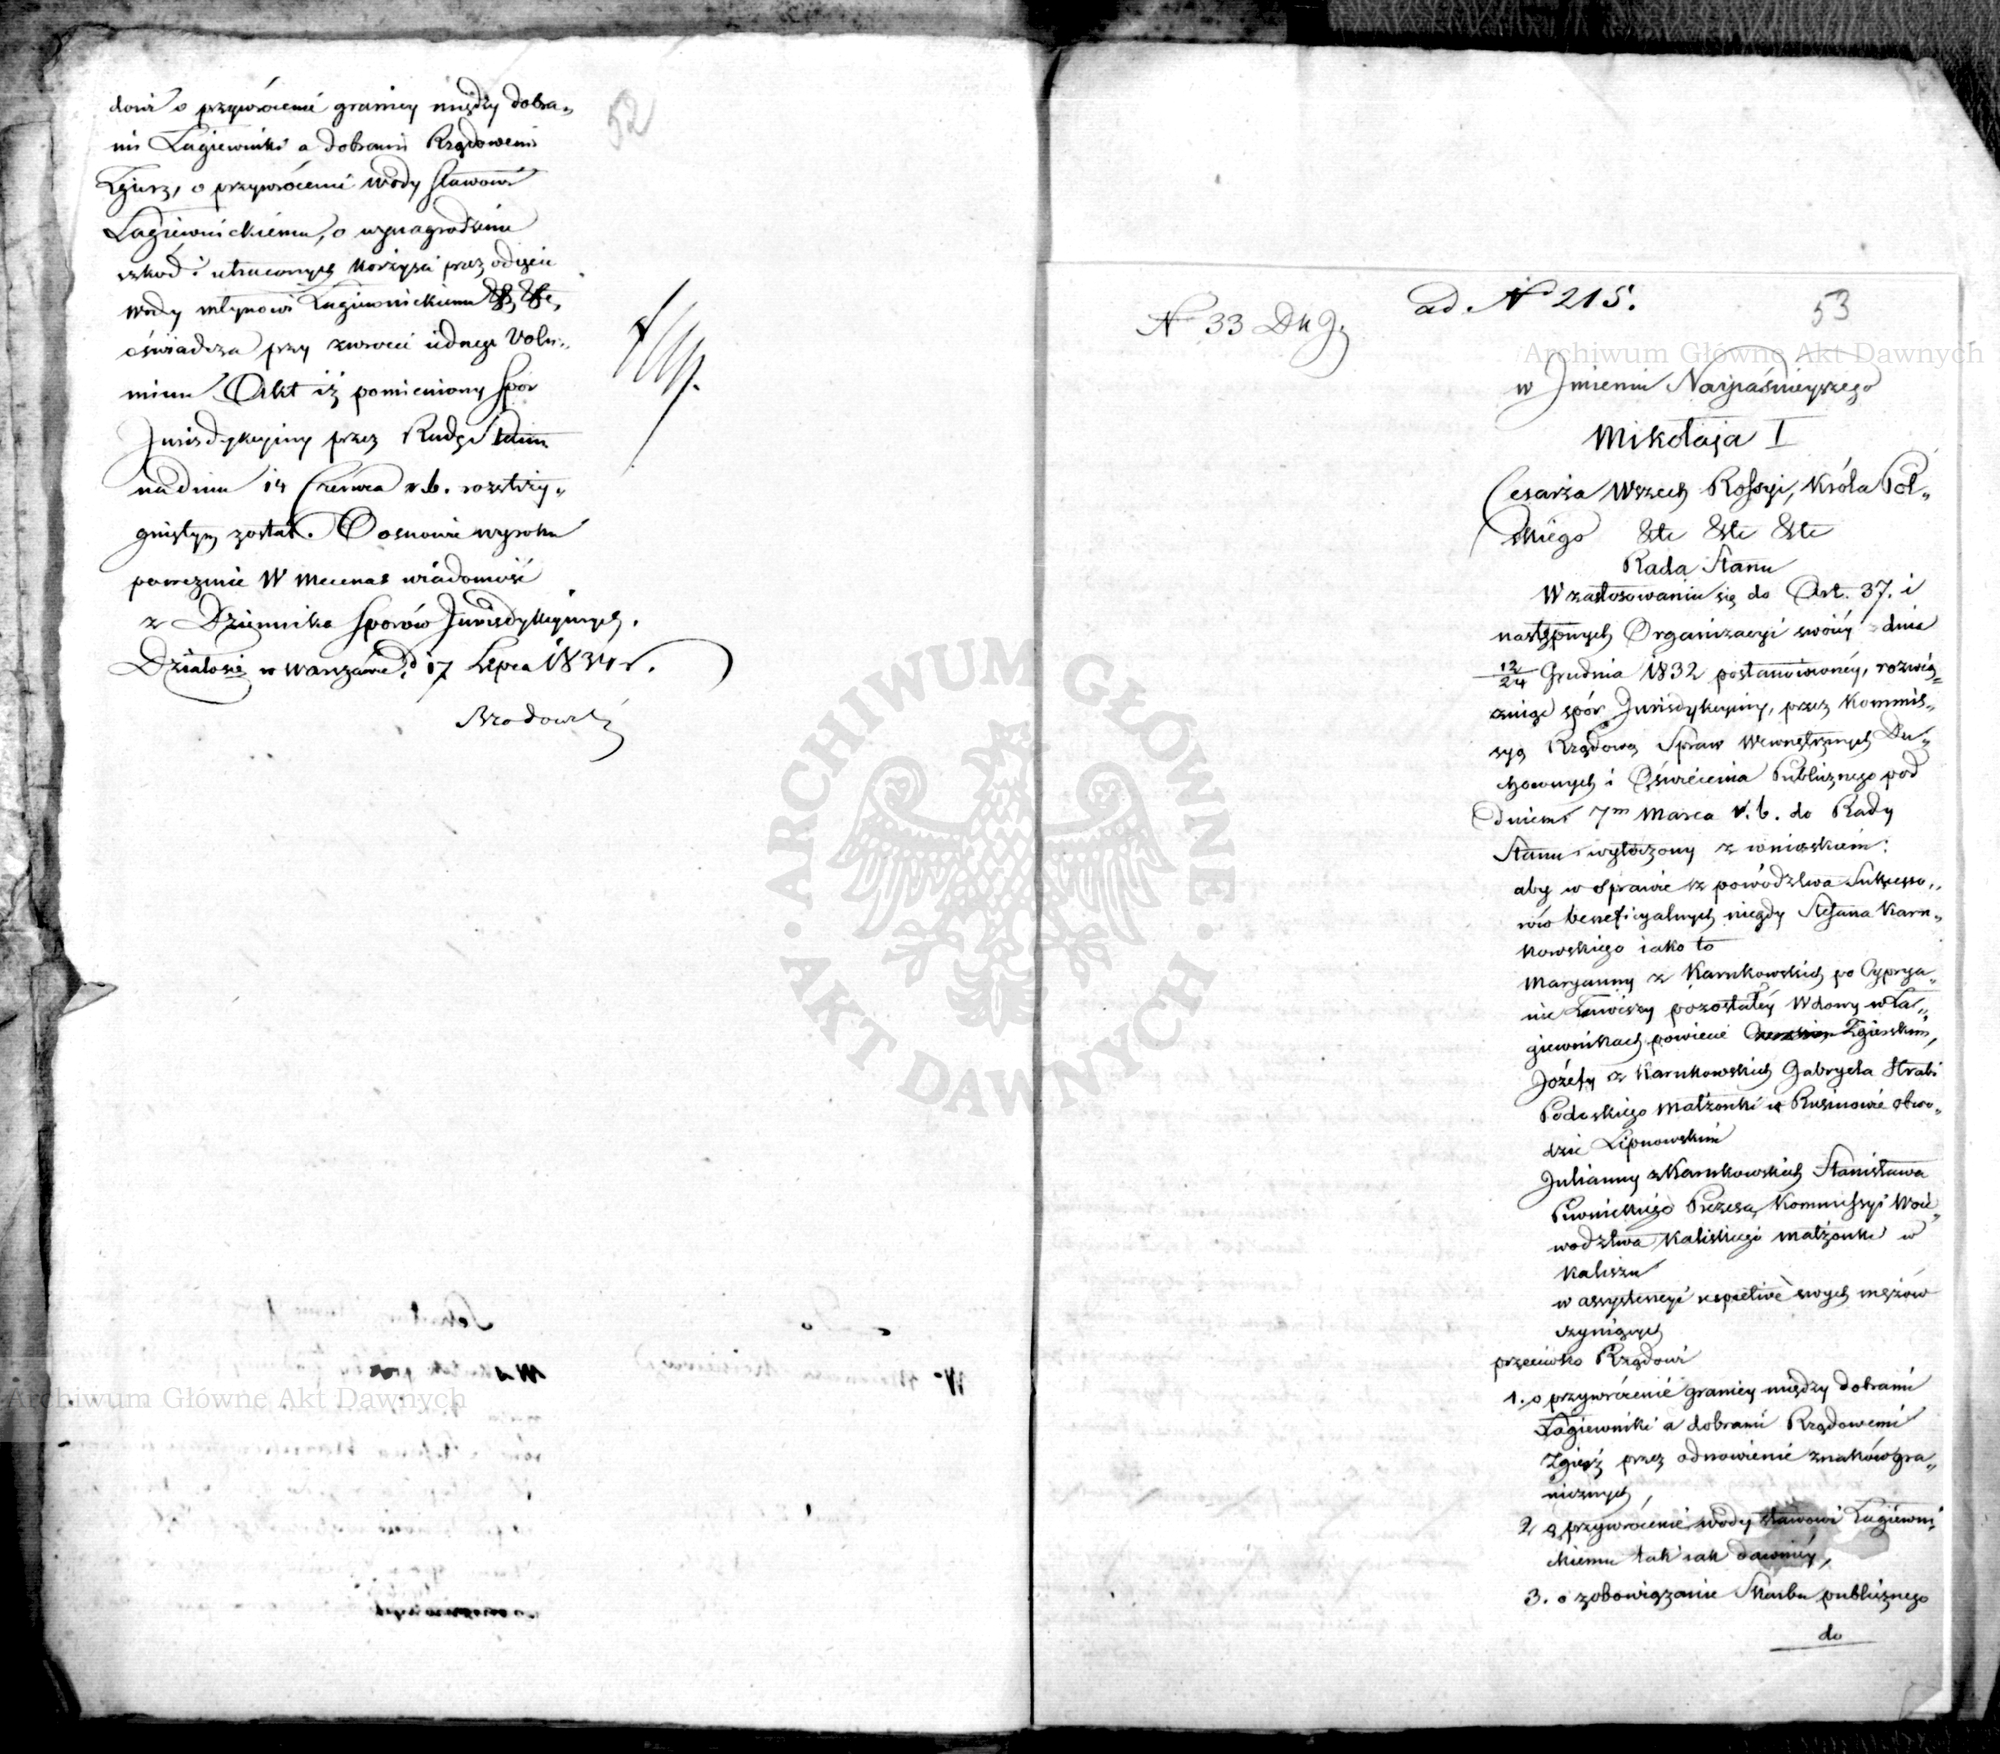 52
dowi o przywrócenie granicy między dobra„
mi Łagiewniki a dobrami Rządowemi
Zgierz, o przywrócenie wody stawowi
Łagiewnickiemu, o wynagrodzenie
szkód i utraconych korzyści przez odjęcie
wody młynowi Łagiewnickiemu
oświadcza przy zwrocie iednego Volu„
minu Akt iż pomieniony Spor
Jurisdykcyiny przez Radę Stanu
na dniu 14 Czerwca r.b. rozstrzy„
gniętym został. O osnowie wyroku
poweźmie W Mecenas wiadomość
z Dziennika Sporów Jurisdykcyinych.
Działo się w Warszawie d 17 Lipca 1834 r.
Brodowski
ad N 215.
53
N 33
Archiwum Główne Akt Dawnych
w Jmieniu Nayjaśnieyszego
Mikołaja I
Cesarza Wszech Rossyi, Króla Pol„
skiego &tc &tc &tc
Rada Stanu
W zastosowaniu się do Art. 37. i
następnych Organizacyi swoiey dnia
12/24 Grudnia 1832 postanowioney, rozwią„
zuiąc spór Jurisdykcyiny, przez Kommis„
syą Rządową Spraw Wewnętrznych Du„
chownych i Oświecenia Publicznego pod
dniem 7m Marca r.b. do Rady
Stanu wytoczony z wnioskiem:
aby w sprawie z powództwa Sukcesso„
rów beneficyalnych niegdy Stefana Karn„
kowskiego iako to
Maryanny z Karnkowskich po Cyprya„
nie pozostałey Wdowy w Ła„
giewnikach powiecie Zgierskim,
Józefy z Karnkowskich Gabryela Hrabi
Podoskiego Małżonki w Rusinowie obwo„
dzie Lipnowskim
Julianny z Karnkowskich Stanisława
Prezesa Kommissyi Woie„
wodztwa Kaliskiego małżonki w
Kaliszu
w assystencyi respective swych mężów
czyniących
przeciwko Rządowi
1. o przywrócenie granicy między dobrami
Łagiewniki a dobrami Rządowemi
Zgierz przez odnowienie znaków gra„
nicznych,
2 o przywrócenie wody stawowi Łagiewni„
ckiemu tak iak dawniey,
3. o zobowiązanie Skarbu publicznego
do
ARCHIWUM GŁÓWNE AKT DAWNYCH
Archiwum Główne Akt Dawnych